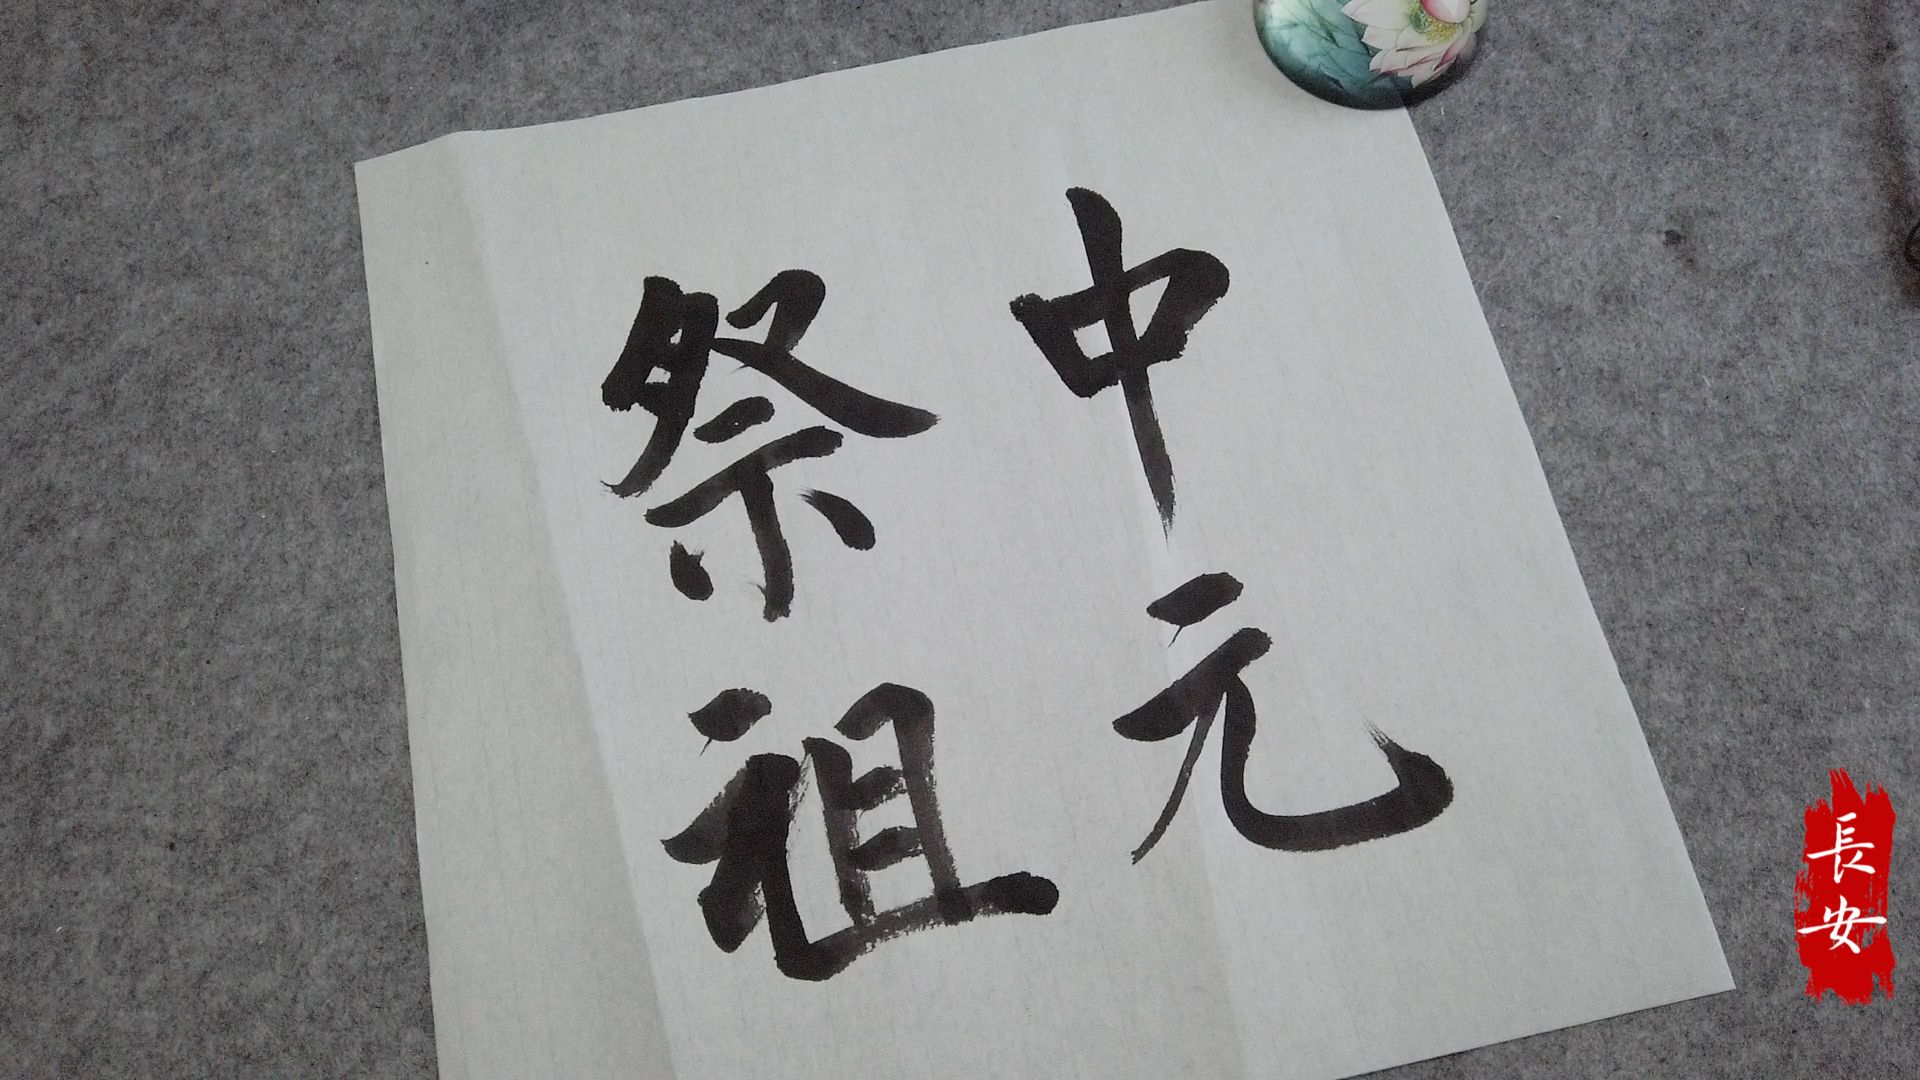 中元
祭祖
長安